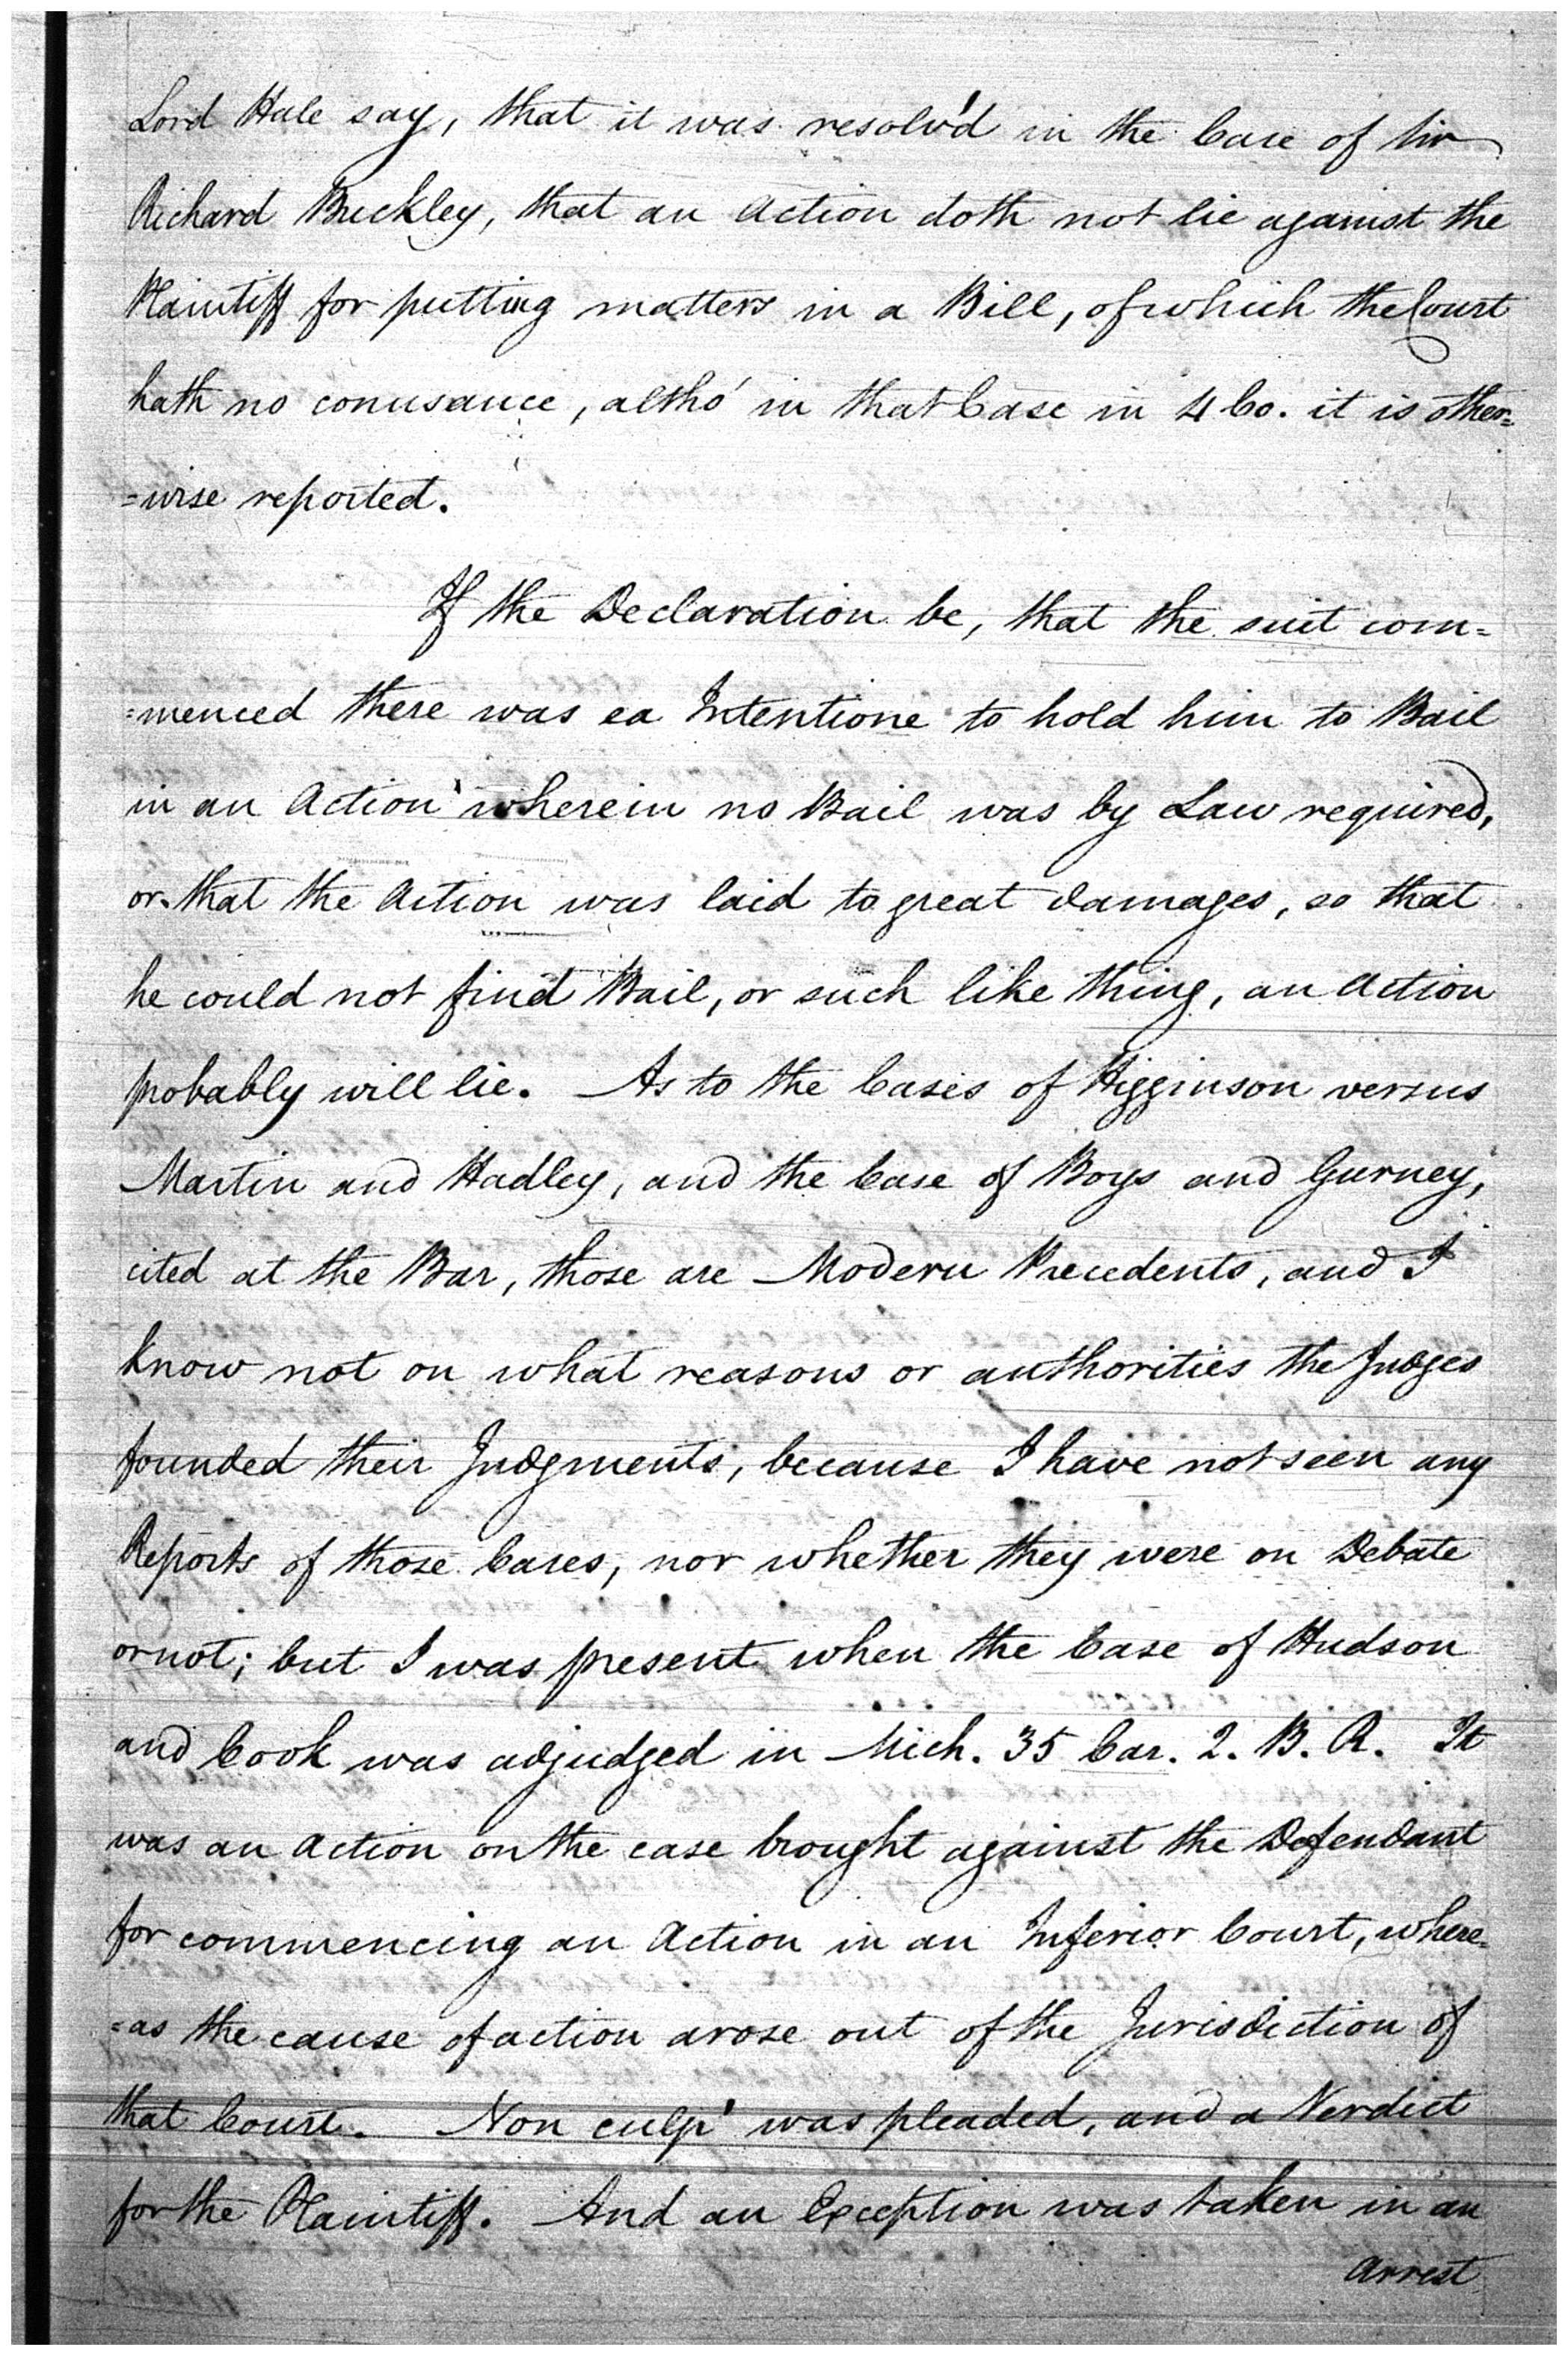 Lord Hale say, that it was resolv'd in the Case of Sir
Richard Buckley, that an Action doth not lie against the
Plaintiff for putting matters in a Bill, of which the Court
hath no conusance, altho' in that Case in 4 Co. it is other=
=wise reported.
If the Declaration be, that the suit com=
=menced there was ea Intentione to hold him to Bail
in an Action wherein no Bail was by Law required,
or that the Action was laid to great damages, so that
he could not find Bail, or such like thing, an Action
probably will lie. As to the Cases of Higginson versus
Martin and Hadley, and the Case of Boys and Gurney,
cited at the Bar, those are Modern Precedents, and I
know not on what reasons or authorities the Judges
founded their Judgments, because I have not seen any
Reports of those Cases, nor whether they were on Debate
or not; but I was present when the Case of Hudson
and Cook was adjudged in Mich. 35 Car. 2. B. R. It
was an Action on the case brought against the Defendant
for commencing an Action in an Inferior Court, where=
=as the cause of action arose out of the Jurisdiction of
that Court. Non culp' was pleaded, and a Verdict
for the Plaintiff. And an Exception was taken in an
Arrest